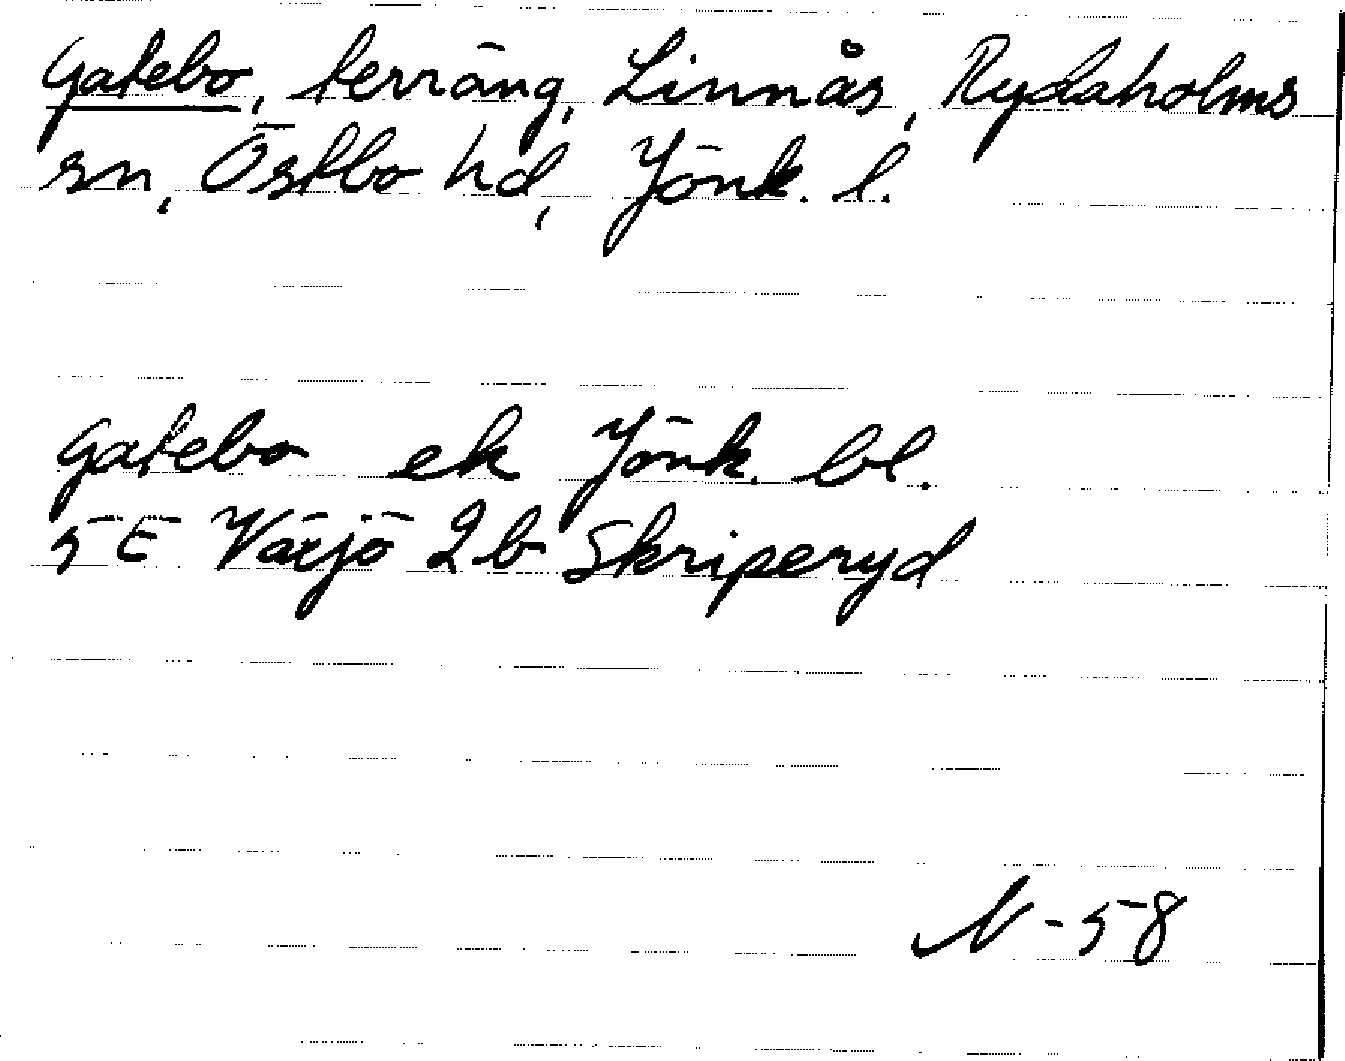 Gatebo, terräng, Linnås, Rydaholms
sn, Östbo hd, Jönk. l.
Gatebo ek Jönk. bl.
5 E Växjö 2 b Skriperyd
N - 58